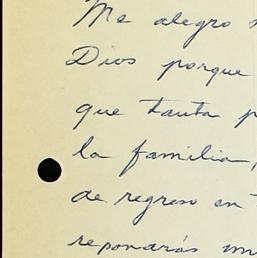 Me alegro
Dios porque
que tanta
la familia,
de regreso en
repondrás